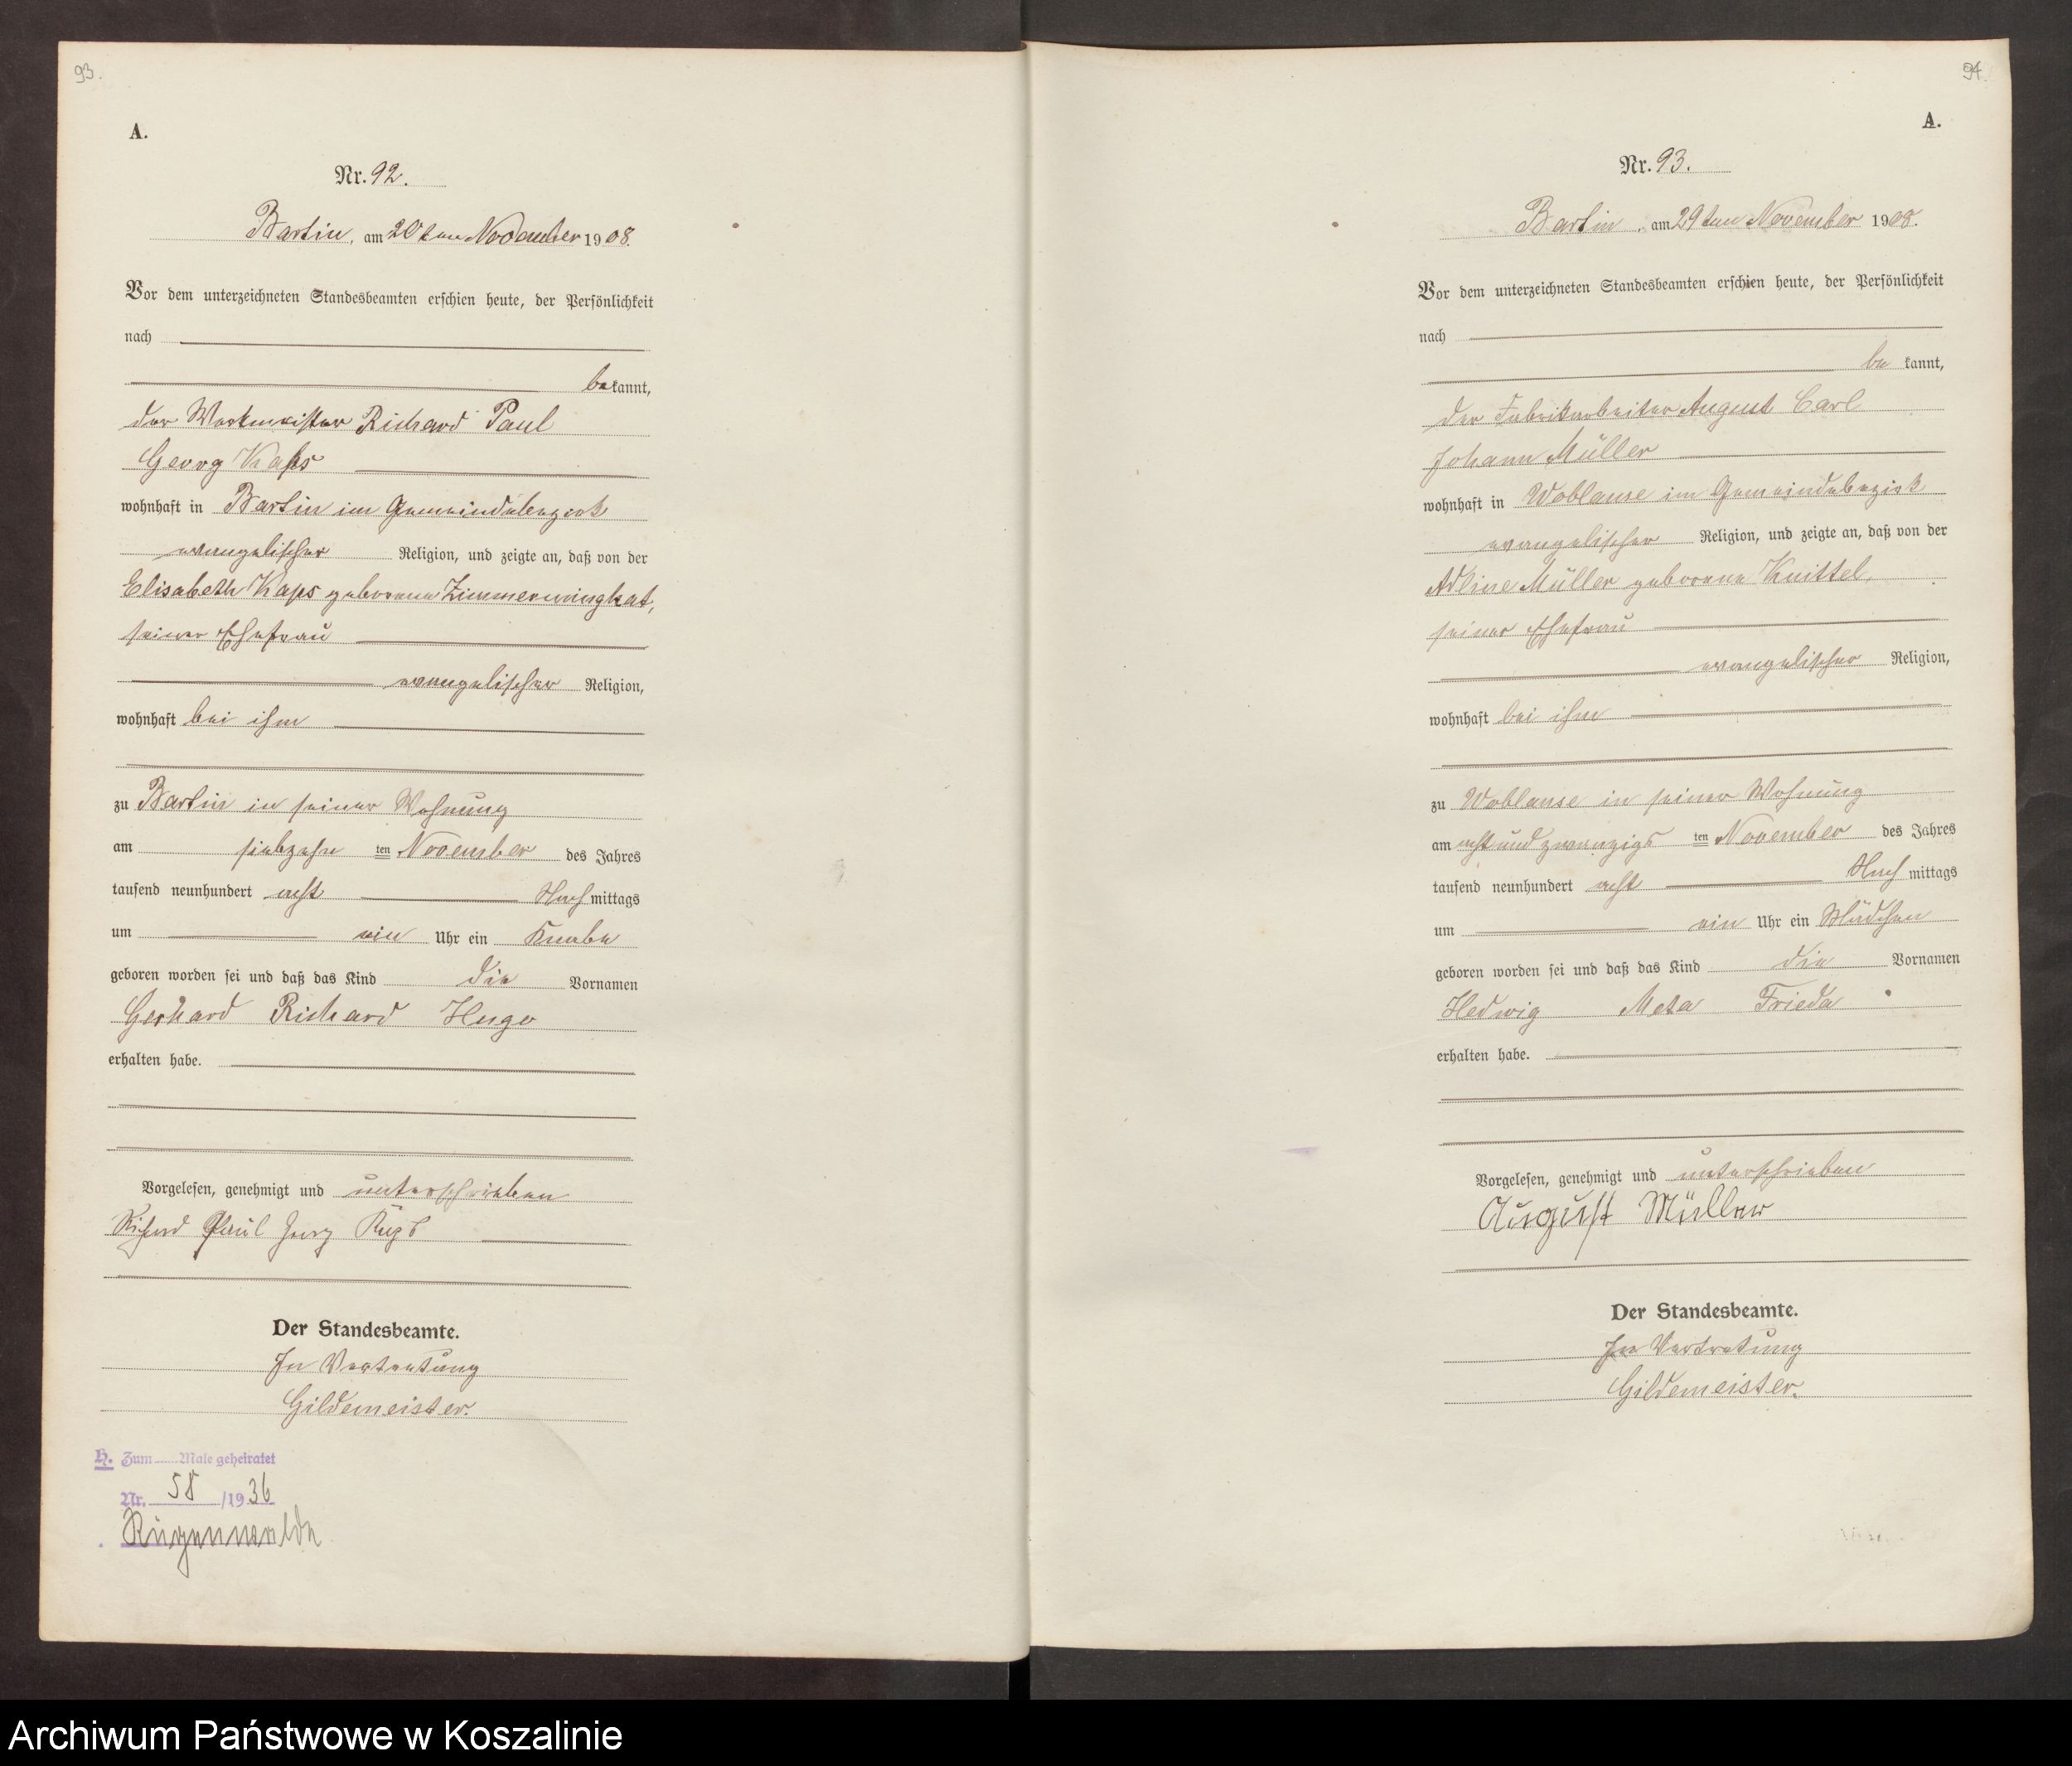 93.
A.
Nr. 92.
Bartin, am 20ten November 1908.
Vor dem unterzeichneten Standesbeamten erschien heute, der Persönlichkeit
nach
bekannt,
der Werkmeister Richard Paul
Georg Kaps
wohnhaft in Bartin im Gemeindebezirk
evangelischer Religion, und zeigte an, daß von der
Elisabeth Kaps geborene Zimmermingkat,
seiner Ehefrau
evangelischer Religion,
wohnhaft bei ihm
zu Bartin in seiner Wohnung
am siebzehn ten November des Jahres
tausend neunhundert acht Nachmittags
um ein Uhr ein Knabe
geboren worden sei und daß das Kind die Vornamen
Gerhard Richard Hugo
erhalten habe.
Vorgelesen, genehmigt und unterschrieben
Richard Paul Georg Kaps
Der Standesbeamte.
In Vertretung
Gildemeister.
H. Zum Male geheiratet
Nr. 58 /1936
Rügenwalde
94.
A.
Nr. 93.
Bartin, am 29ten November 1908.
Vor dem unterzeichneten Standesbeamten erschien heute, der Persönlichkeit
nach
bekannt,
der Fabrikarbeiter August Carl
Johann Müller
wohnhaft in Woblanse im Gemeindebezirk
evangelischer Religion, und zeigte an, daß von der
Adline Müller geborene Knittel,
seiner Ehefrau
evangelischer Religion,
wohnhaft bei ihm
zu Woblanse in seiner Wohnung
am acht und zwanzigs ten November des Jahres
tausend neunhundert acht Nachmittags
um ein Uhr ein Mädchen
geboren worden sei und daß das Kind die Vornamen
Hedwig Meta Frieda
erhalten habe.
Vorgelesen, genehmigt und unterschrieben
August Müller
Der Standesbeamte.
In Vertretung
Gildemeister.
Archiwum Państwowe w Koszalinie